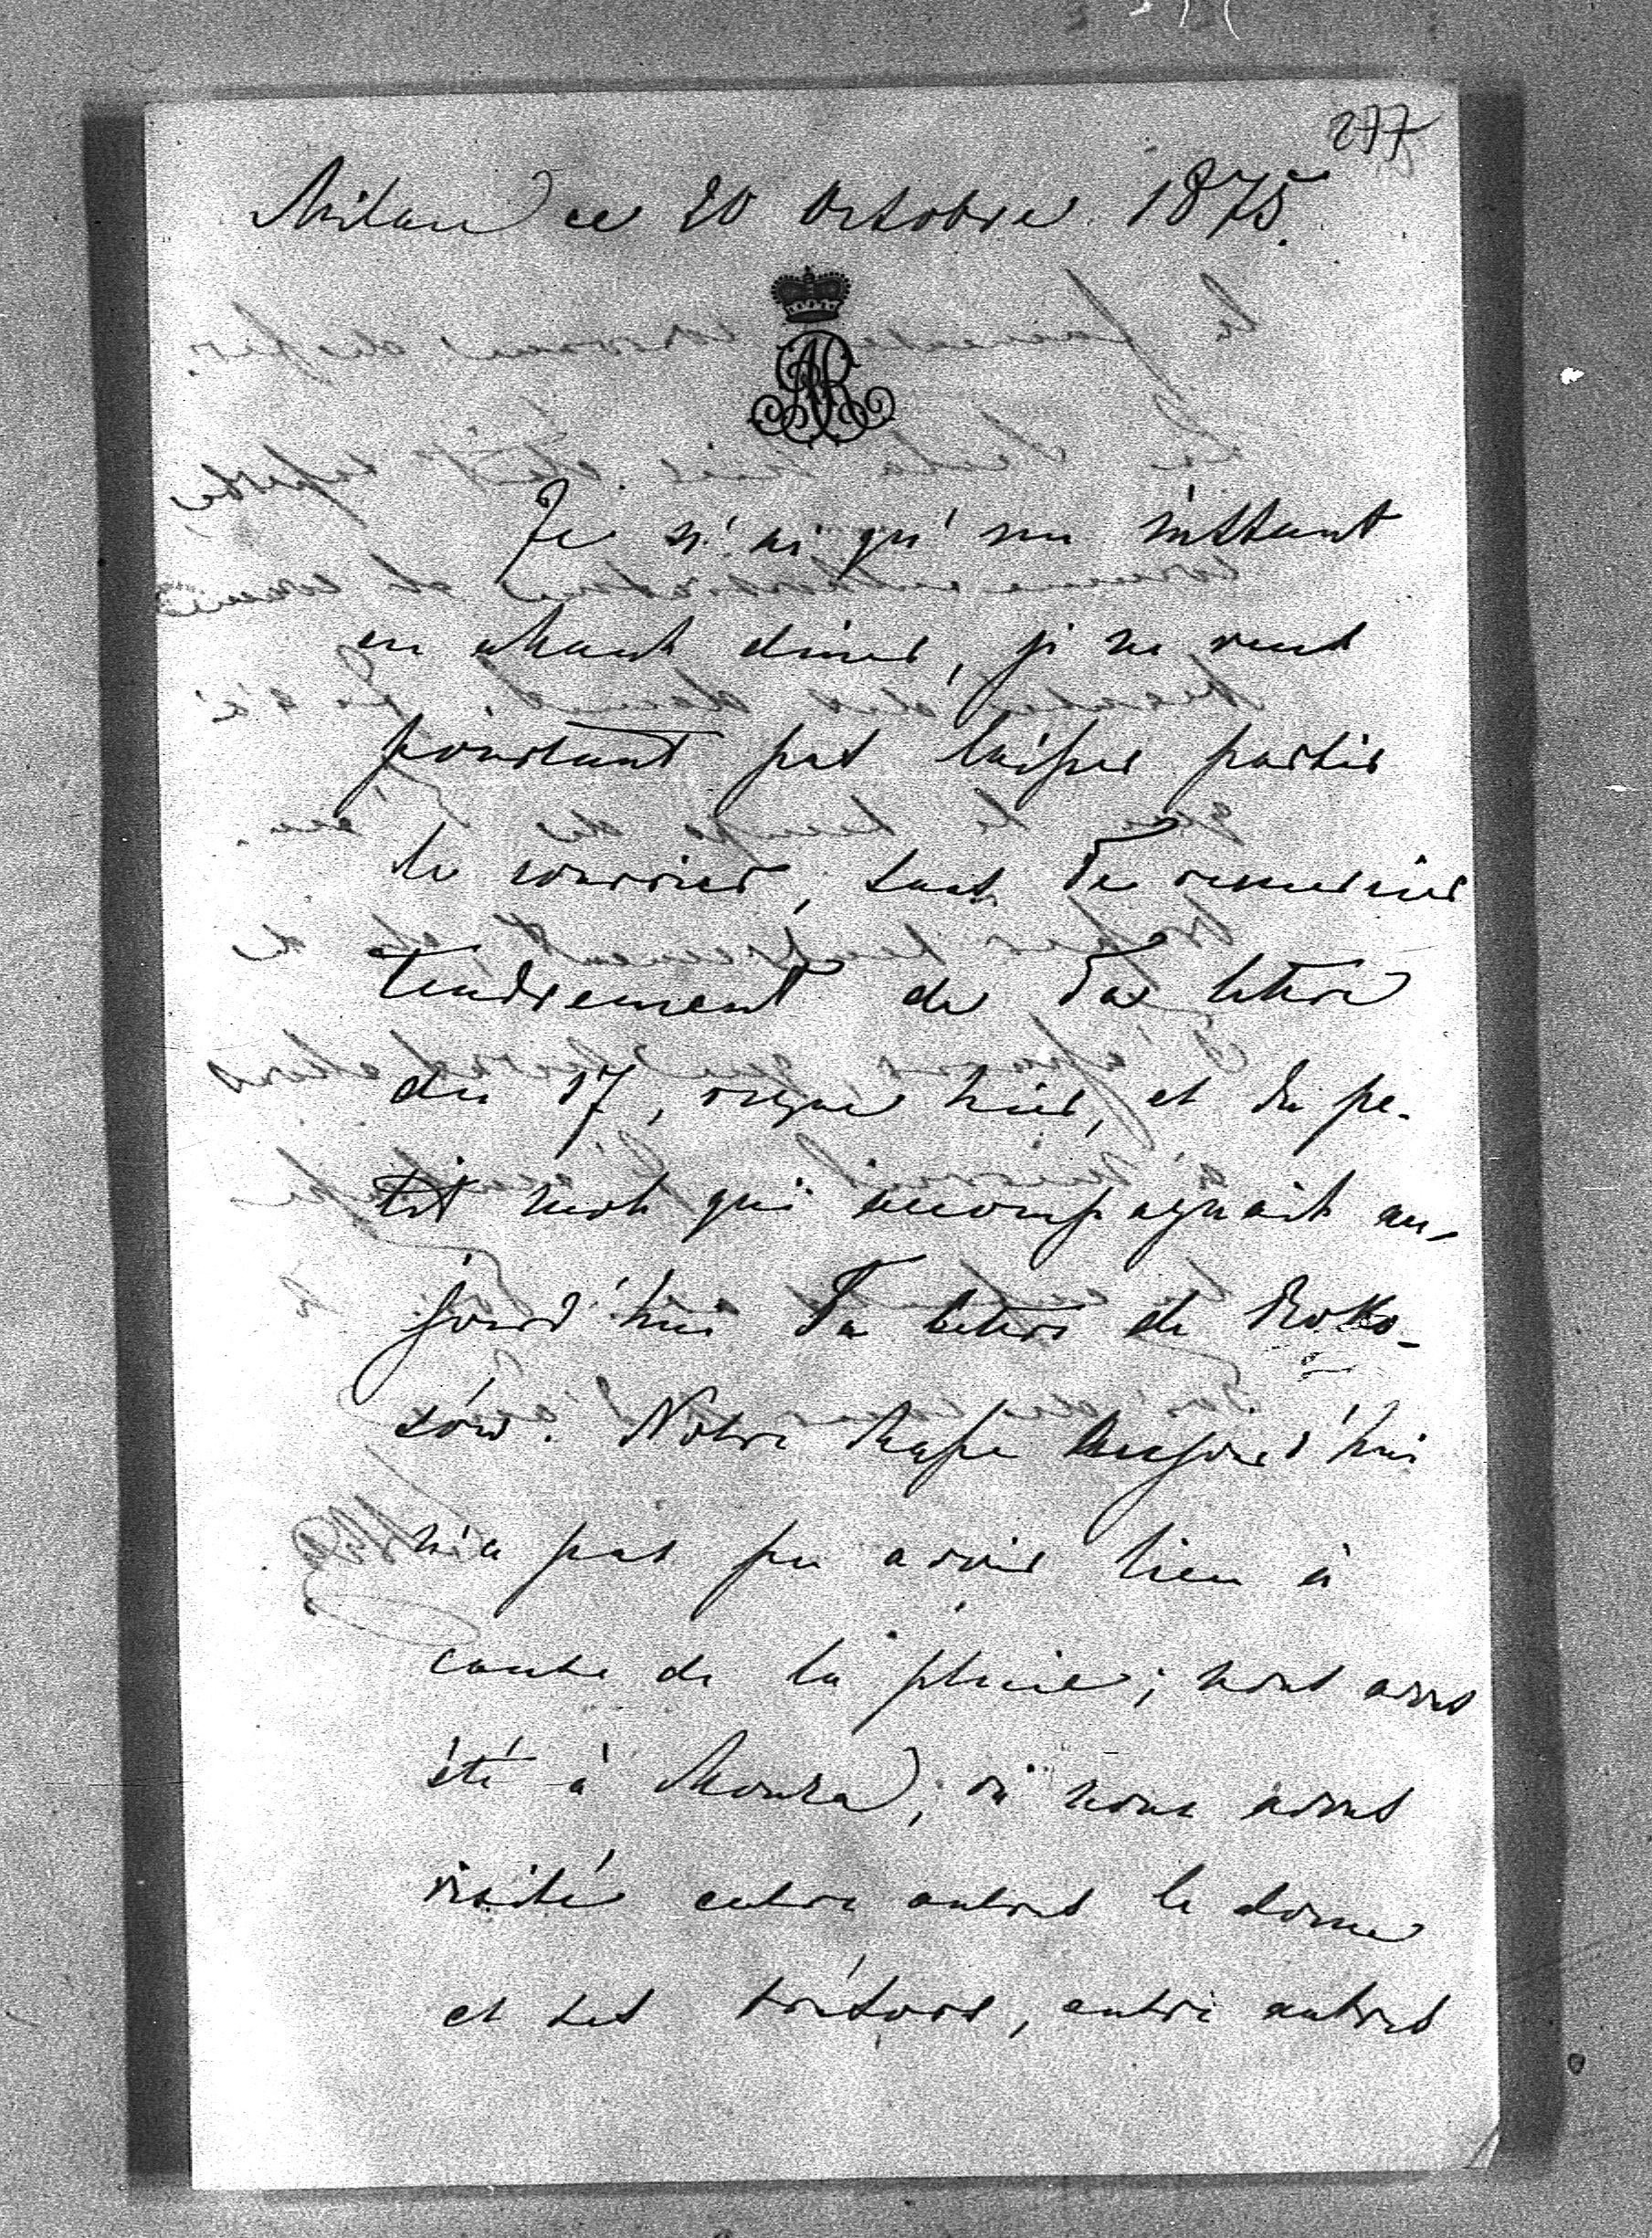 277
Milan ce 20 Octobre 1875.
Je n'ai qu'un instant
en avant diner, je ne veux
pourtant pas laisser partir
le courrier, sans Te remercier
tendrement de Ta lettre
du 17, reçue hier, et du pe-
tit mot qui accompagnait au-
jourd'hui Ta lettre de Roko-
sow. Notre chasse aujourd'hui
n'a pas pu avoir lieu à
cause de la pluie; nous avons
été à Monza, où nous avons
visité entre autres le dome
et ses trésors, entre autres